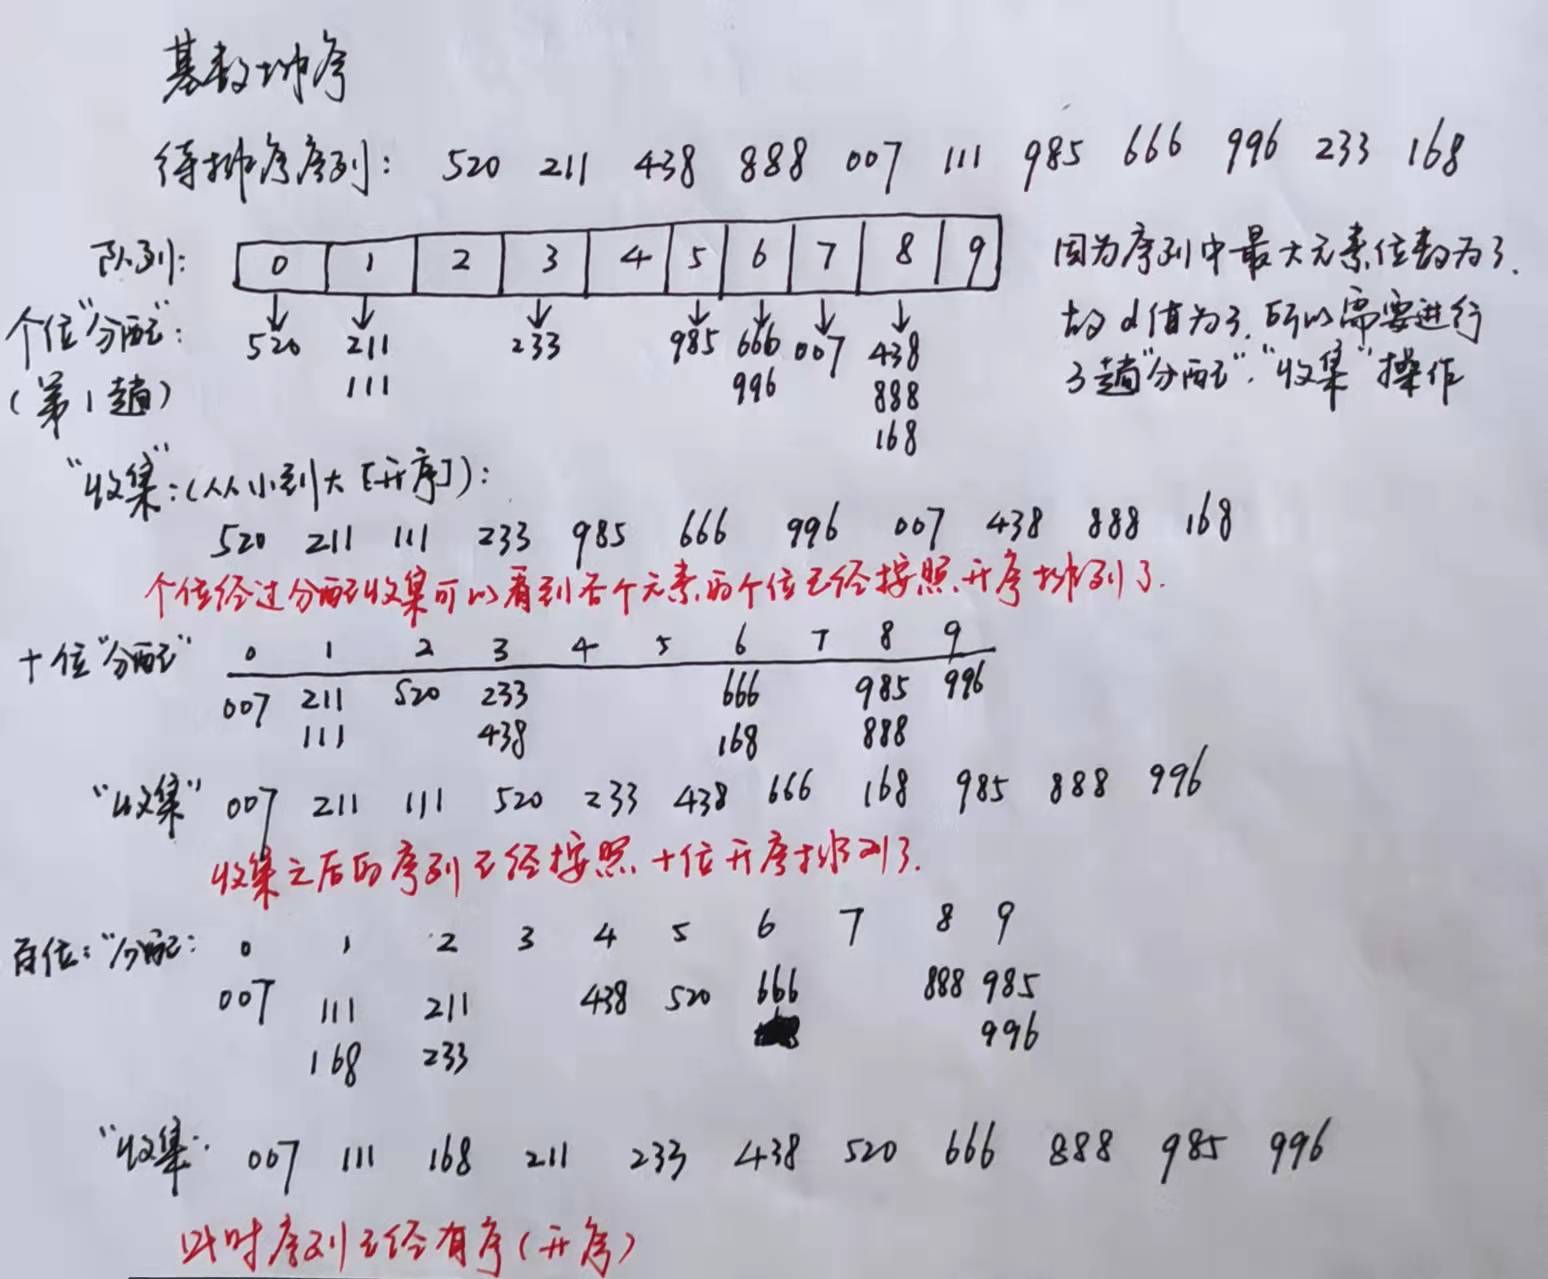 基数排序
待排序序列: 520 211 438 888 007 111 985 666 996 233 168
队列: 0 1 2 3 4 5 6 7 8 9
个位"分配":
(第1趟)
520 211 233 985 666 007 438
111 996 888
168
因为序列中最大元素位数为3.
故d值为3.所以需要进行
3趟"分配"."收集"操作
"收集":(从小到大[升序]):
520 211 111 233 985 666 996 007 438 888 168
个位经过分配收集可以看到各个元素的个位已经按照升序排列了.
十位"分配" 0 1 2 3 4 5 6 7 8 9
007 211 520 233 666 985 996
111 438 168 888
"收集" 007 211 111 520 233 438 666 168 985 888 996
收集之后的序列已经按照十位升序排列了.
百位:"分配: 0 1 2 3 4 5 6 7 8 9
007 111 211 438 520 666 888 985
168 233 996
"收集: 007 111 168 211 233 438 520 666 888 985 996
此时序列已经有序(升序)